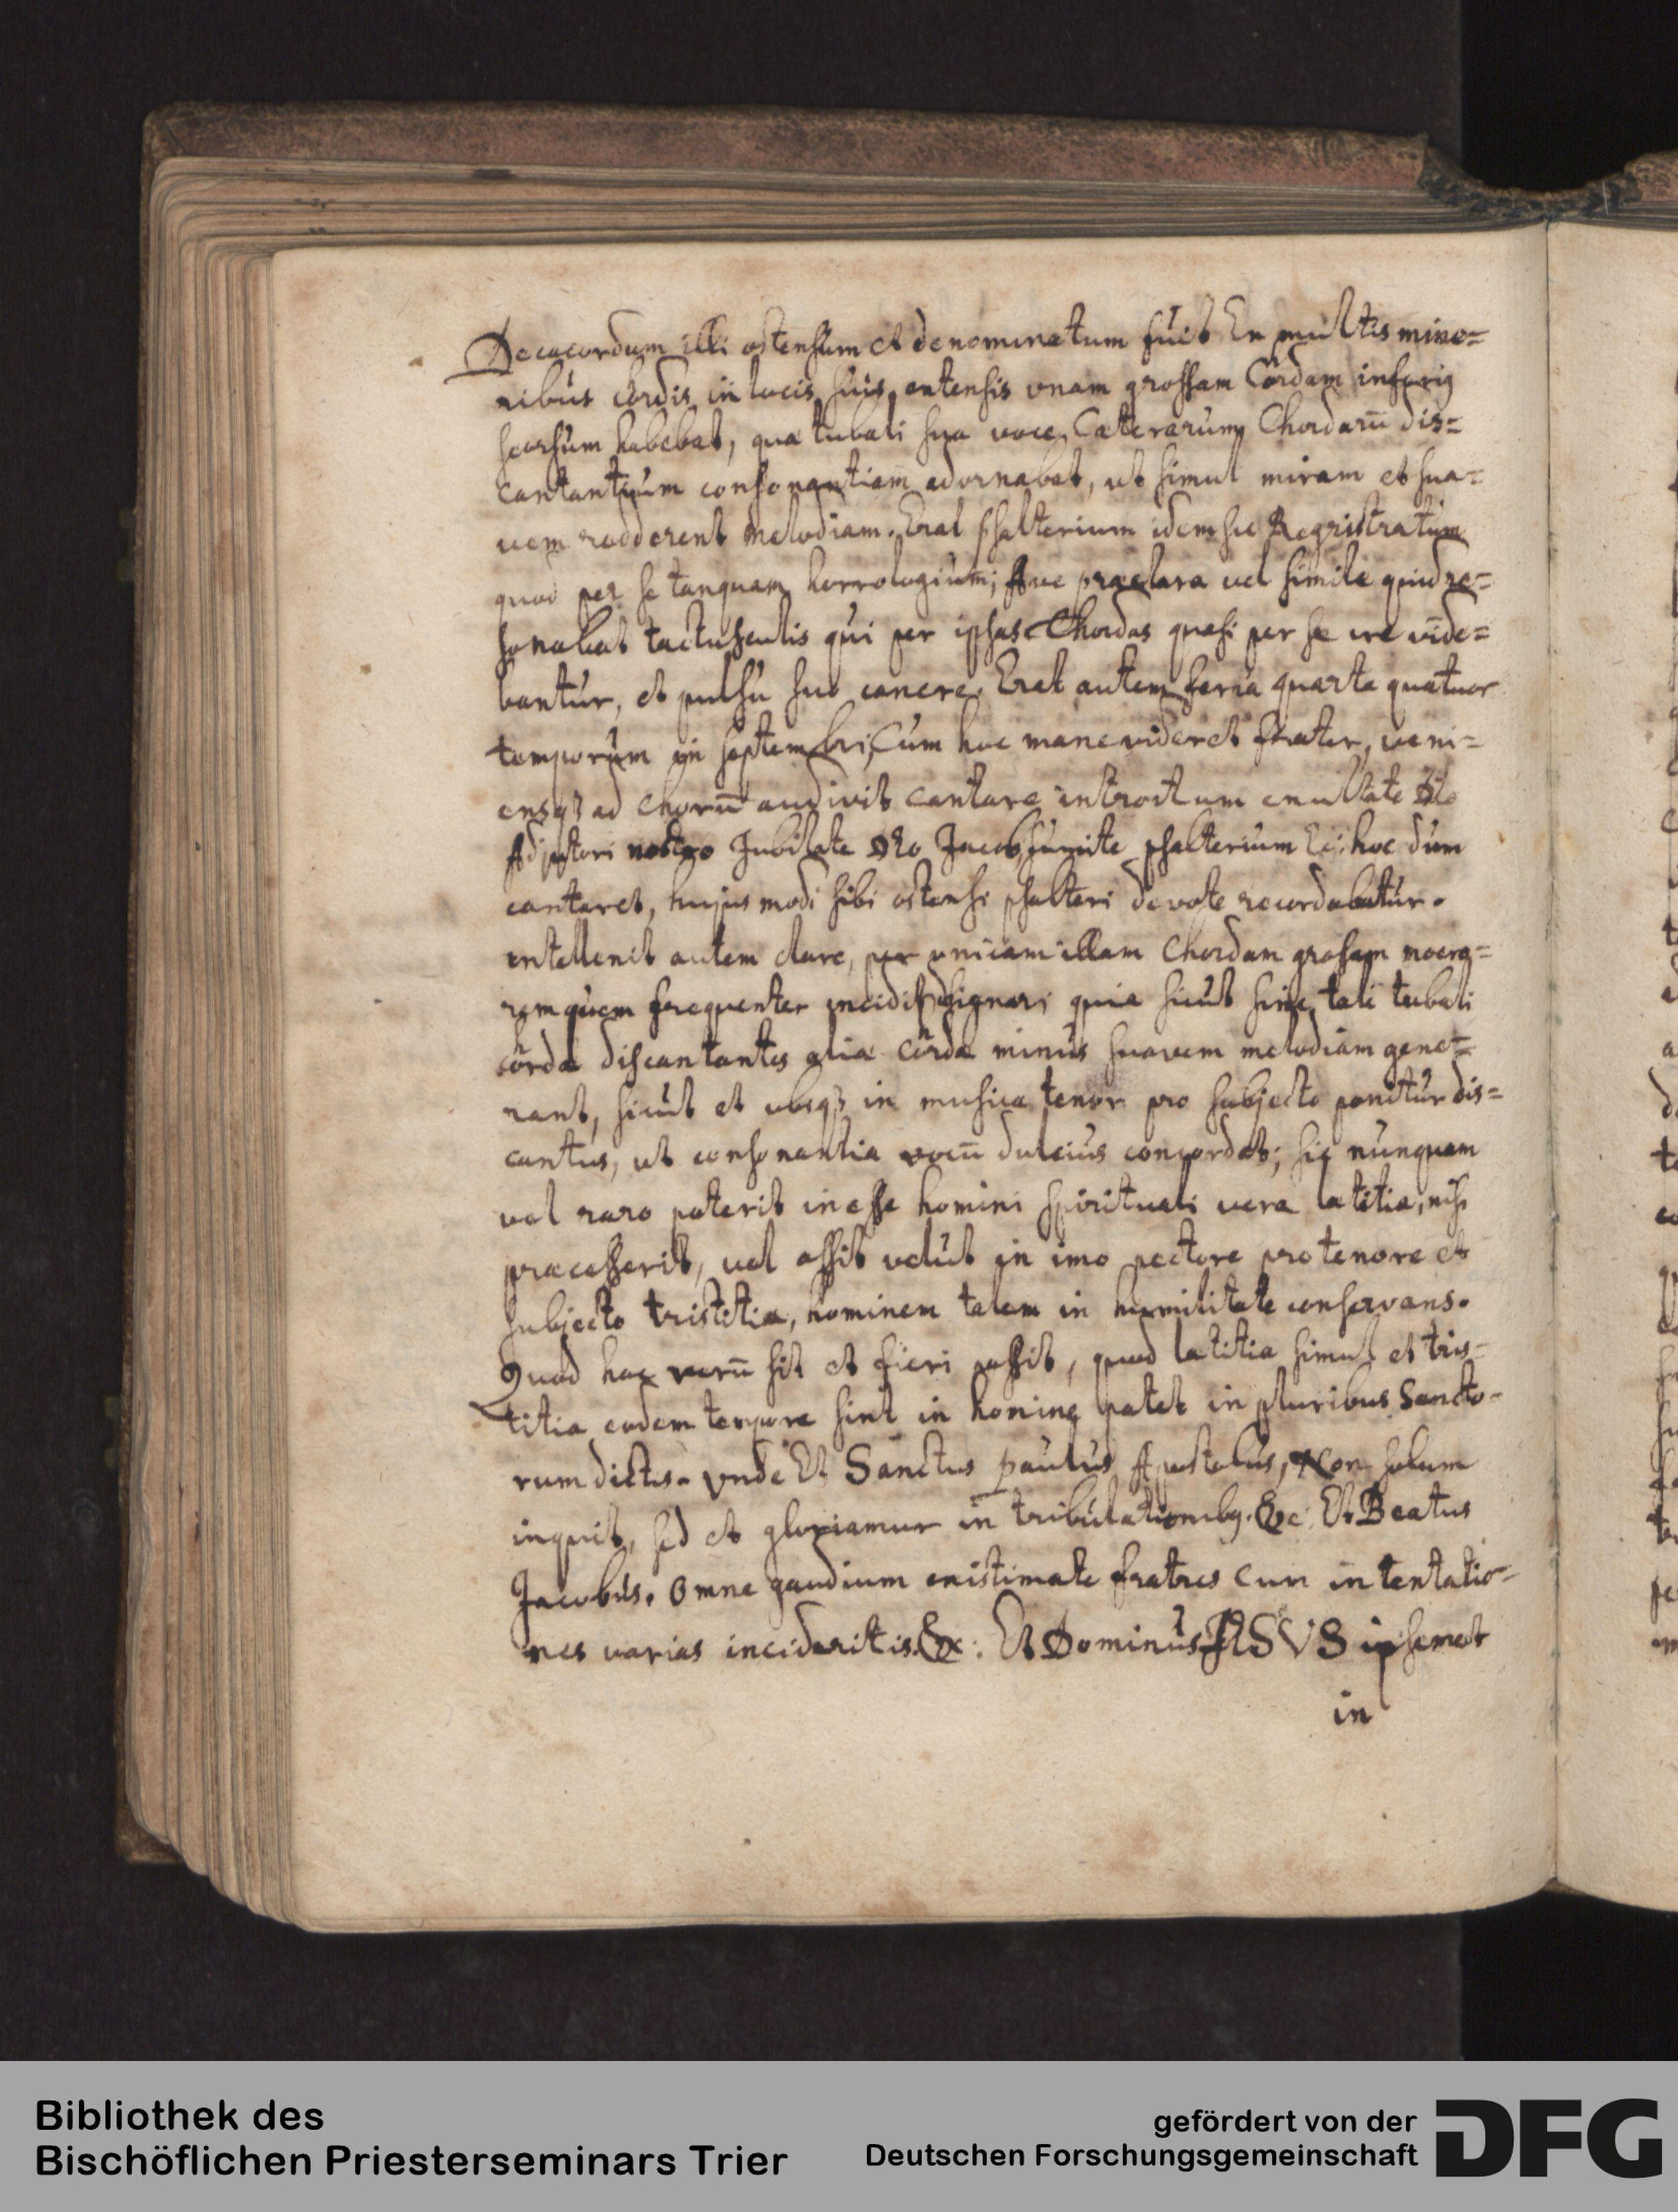 Decacordum illi ostensum et denominatum fuit Ex multis mino=
ribus cordis in locis suis extensis vnam grossam Cordam inferiꝰ
seorsum habebat, quæ tubali sua voce Cæterarum Chordarū dis=
cantantium consonantiam adornabat, ut simul miram et sua=
uem redderent melodiam. Erat psalterium idem sic Registratum
quod per se tanquam horrologium; Ave præclara vel simile quid re=
sonabat tactusculis qui per ipsas Chordas quasi per se ire vide=
bantur, et pulsu suo canere. Erat autem feria quarta quatuor
temporum in septembri, Cum hoc mane videret frater, veni=
ensqȝ ad Chorū audivit cantare introitum exultate Deo
Adjutori nostro Jubilate Deo Jacob sumite psalterium Ec: hoc dum
cantaret, hujusmodi sibi ostensi psalteri devote recordabatur.
intellexit autem clare, per unicam illam Chordam grossam moero=
rem quem frequenter incidit designari quia sicut sine tali tubali
corda discantantes aliæ cordæ minus suavem melodiam gene=
rant, sicut et absqȝ in musica tenor pro subjecto ponitur dis=
cantus, ut consonantia vocū dulcius concordet; sic nunquam
vel raro poterit inesse homini spirituali vera lætitia, nisi
præcesserit, vel assit velut in imo pectore pro tenore et
subjecto tristitia, hominem talem in humilitate conservans.
Quod hæc verū sit et fieri possit, quod lætitia simul et tris=
titia eodem tempore sint in homine patet in pluribus Sancto-
rum dictis. vnde Et Sanctus paulus Apostolus, Non solum
inquit, sed et gloriamur in tribulationibꝰ. &c: Et Beatus
Jacobus. Omne gaudium existimate fratres cum in tentatio-
nes varias incideritis. &c: Et Dominus JESVS ipsemet
in
Bibliothek des
Bischöflichen Priesterseminars Trier
gefördert von der
Deutschen Forschungsgemeinschaft
DFG